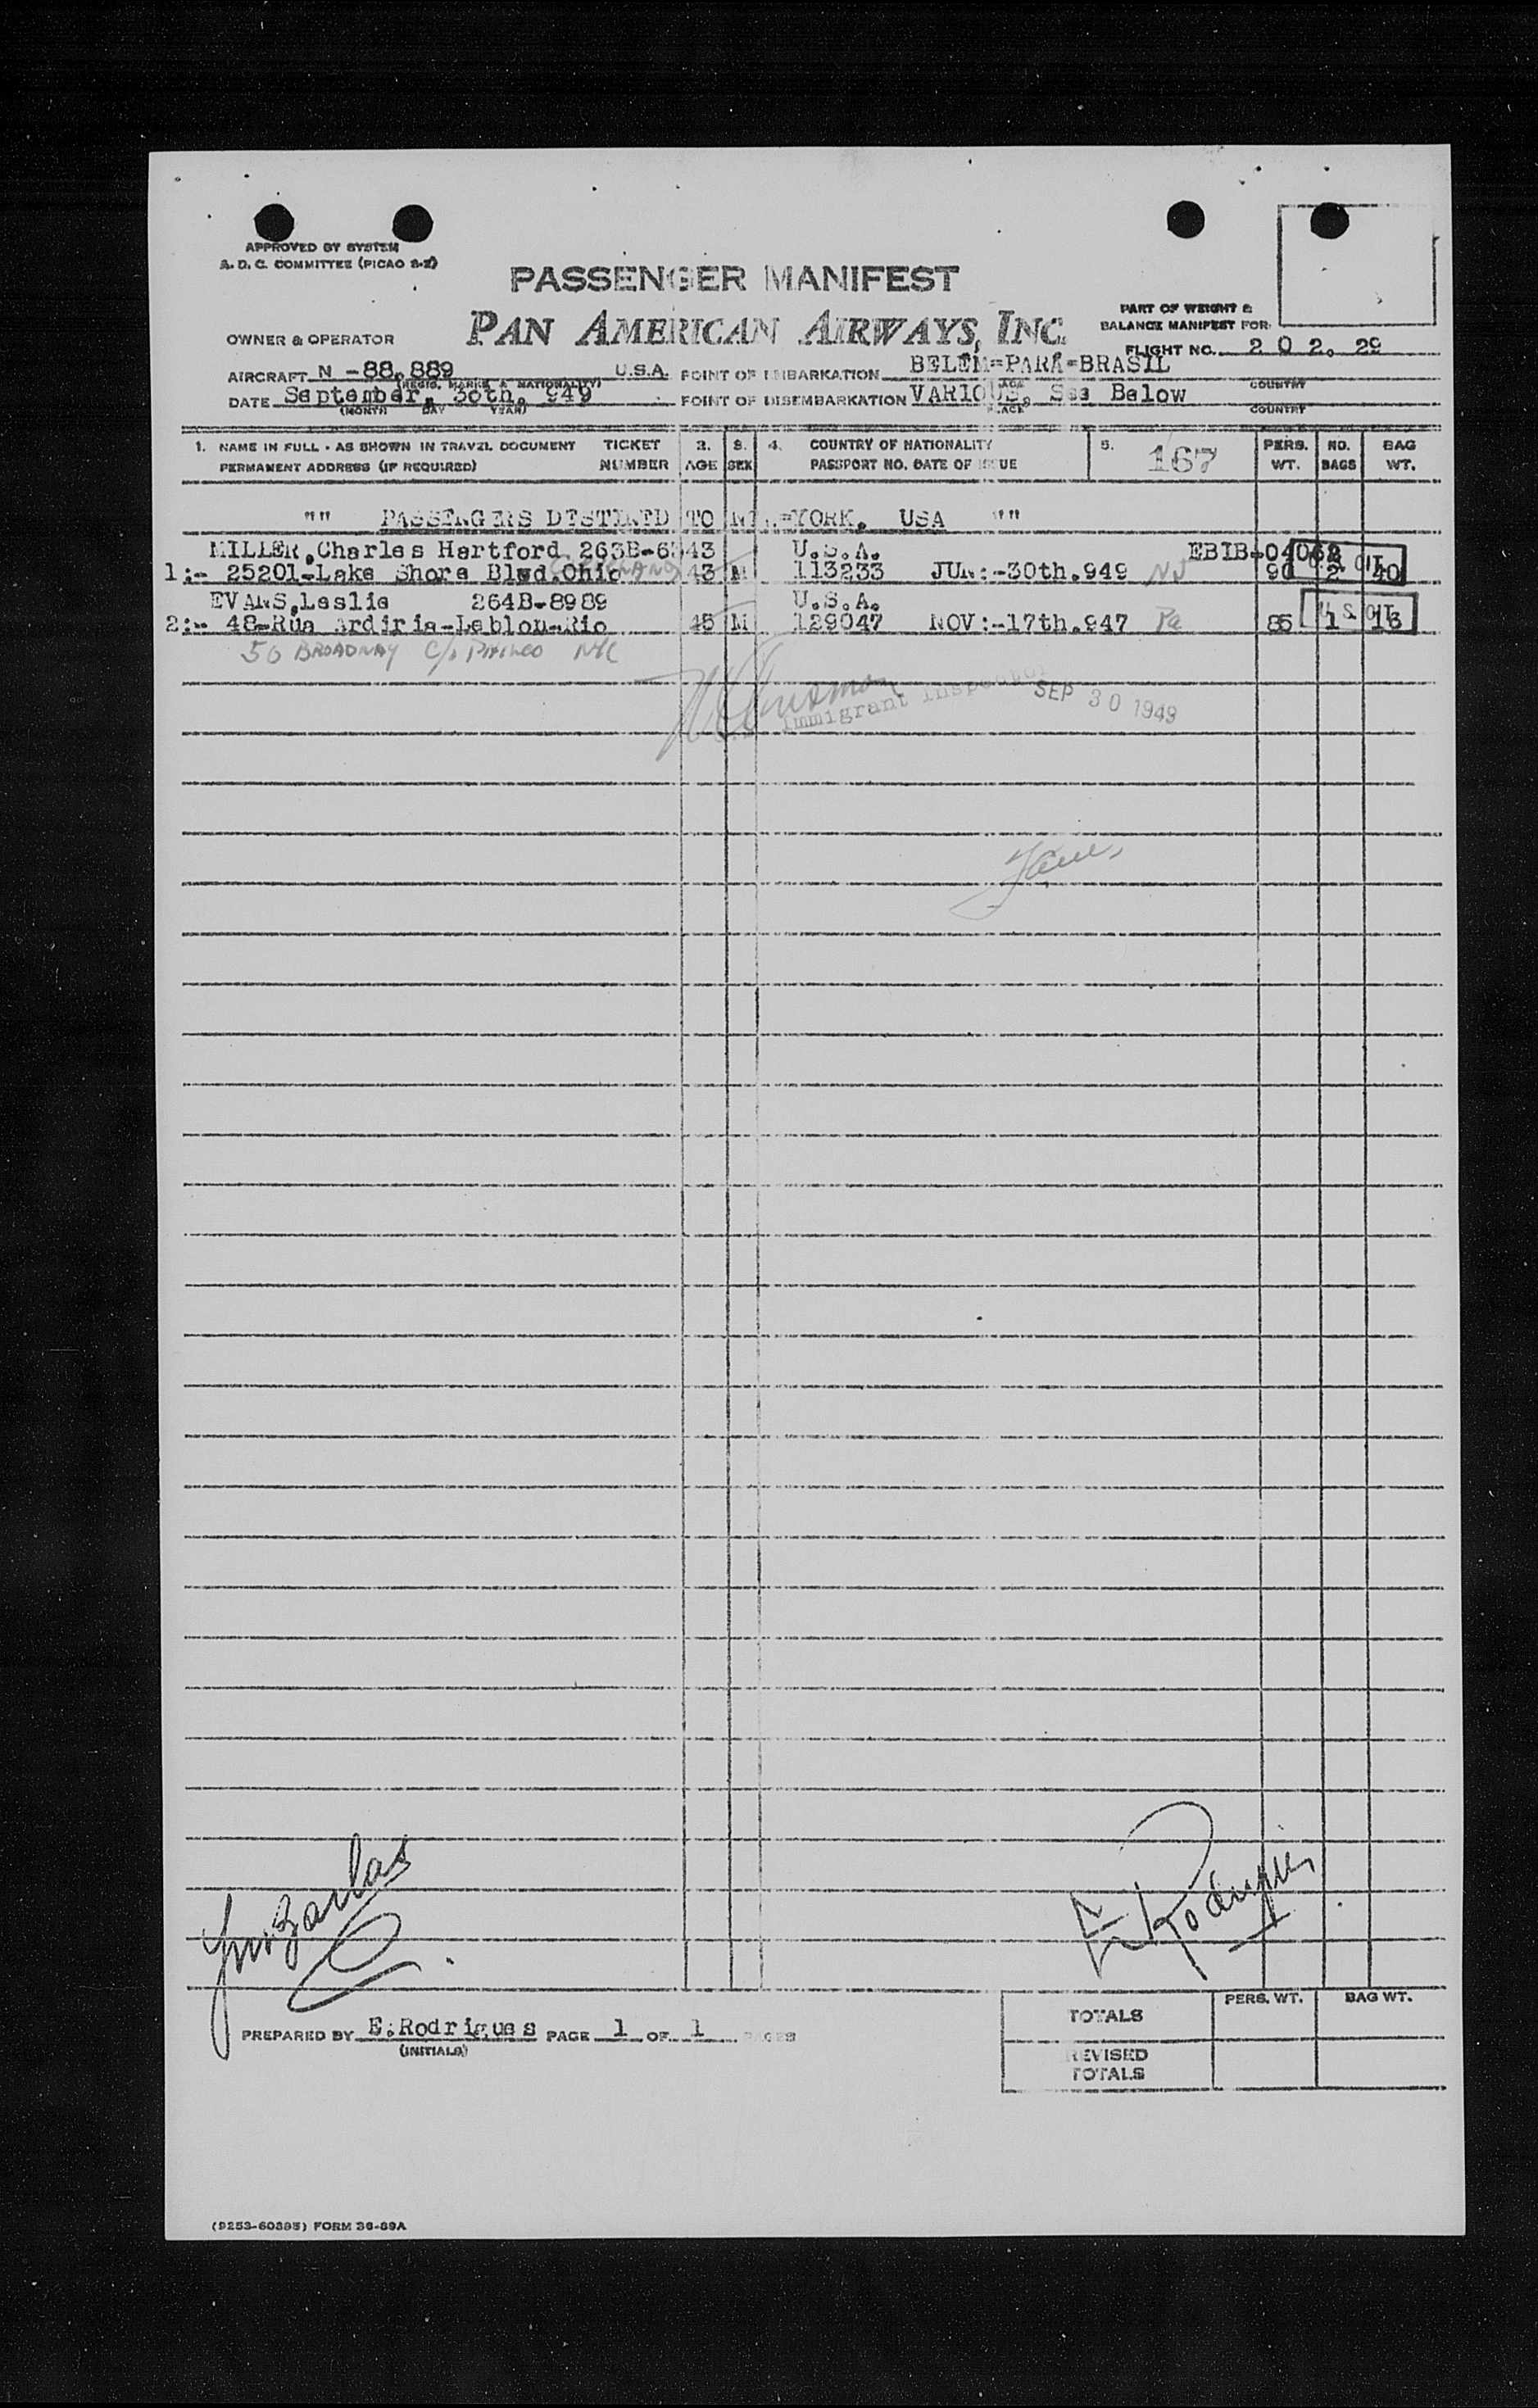 APPROVED BY SYSTEM
A. D. C. COMMITTEE (PICAO S-2)
PASSENGER MANIFEST
PART OF WEIGHT &
BALANCE MANIFEST FOR
OWNER & OPERATOR PAN AMERICAN AIRWAYS, INC.
FLIGHT NO. 2 0 2. 29
AIRCRAFT N -88.889 U.S.A. POINT OF EMBARKATION BELEM=PARÁ=BRASIL
(REGIS. MARKS & NATIONALITY) PLACE COUNTRY
DATE September, 30th. 949 POINT OF DISEMBARKATION VARIOUS, See Below
(MONTH DAY YEAR) PLACE COUNTRY
1. NAME IN FULL - AS SHOWN IN TRAVEL DOCUMENT TICKET 2. 3. 4. COUNTRY OF NATIONALITY 5. 167 PERS. NO. BAG
PERMANENT ADDRESS (IF REQUIRED) NUMBER AGE SEX PASSPORT NO. DATE OF ISSUE WT. BAGS WT.
"" PASSENGERS DESTINED TO N.=YORK. USA ""
MILLER,Charles Hartford 263B-6543 U.S.A. EBIB-04062
1:- 25201-Lake Shore Blvd.Ohio CLEVELAND 43 M 113233 JUN:-30th.949 NJ 90 2 40
U.S. CIT.
EVANS,Leslie 264B-8989 U.S.A.
2:- 48-Rua Ardiria-Leblon-Rio 45 M 129047 NOV:-17th.947 Pa 85 1 16
U.S. CIT.
50 BROADWAY C/o PHILCO NYC
Immigrant Inspector SEP 30 1949
E Rodrigues
PREPARED BY E:Rodrigues PAGE 1 OF 1 PAGES
(INITIALS)
PERS. WT. BAG WT.
TOTALS
REVISED
TOTALS
(9253-60395) FORM 36-89A